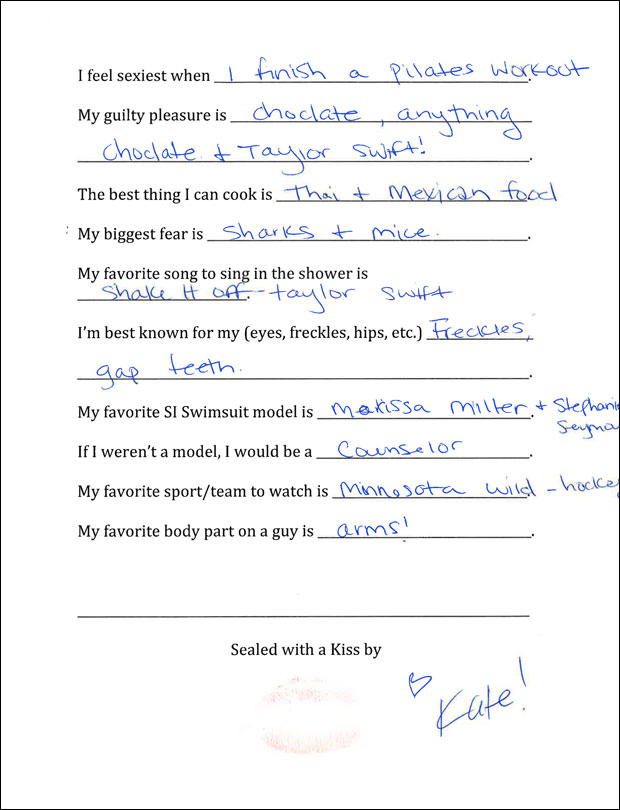 I feel sexiest when I finish a pilates workout.
My guilty pleasure is choclate, anything
choclate & Taylor Swift!.
The best thing I can cook is Thai + Mexican food
My biggest fear is Sharks + mice.
My favorite song to sing in the shower is
Shake It off.-taylor swift
I'm best known for my (eyes, freckles, hips, etc.) Freckles,
gap teeth.
My favorite SI Swimsuit model is Marissa Miller. + Stephanie
Seymo
If I weren't a model, I would be a Counselor.
My favorite sport/team to watch is Minnesota wild. - hockey
My favorite body part on a guy is arms!.
Sealed with a Kiss by
Kate!